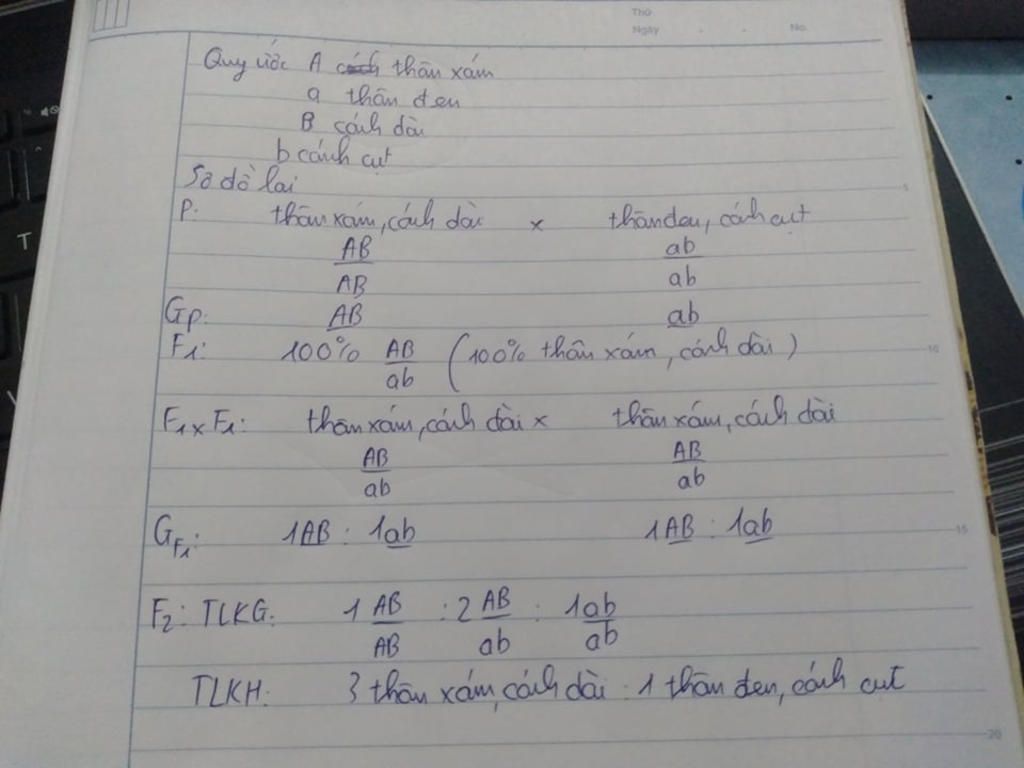 Thứ
Ngày . . No.
Quy ước A thân xám
a thân đen
B cánh dài
b cánh cụt
Sơ đồ lai
P: thân xám, cánh dài x thân đen, cánh cụt
AB ab
AB ab
Gp: AB ab
F1: 100% AB (100% thân xám, cánh dài)
ab
F1 x F1: thân xám, cánh dài x thân xám, cánh dài
AB AB
ab ab
GF1: 1AB : 1ab 1AB : 1ab
F2: TLKG: 1 AB : 2 AB : 1 ab
AB ab ab
TLKH: 3 thân xám, cánh dài : 1 thân đen, cánh cụt
5
10
15
20
T